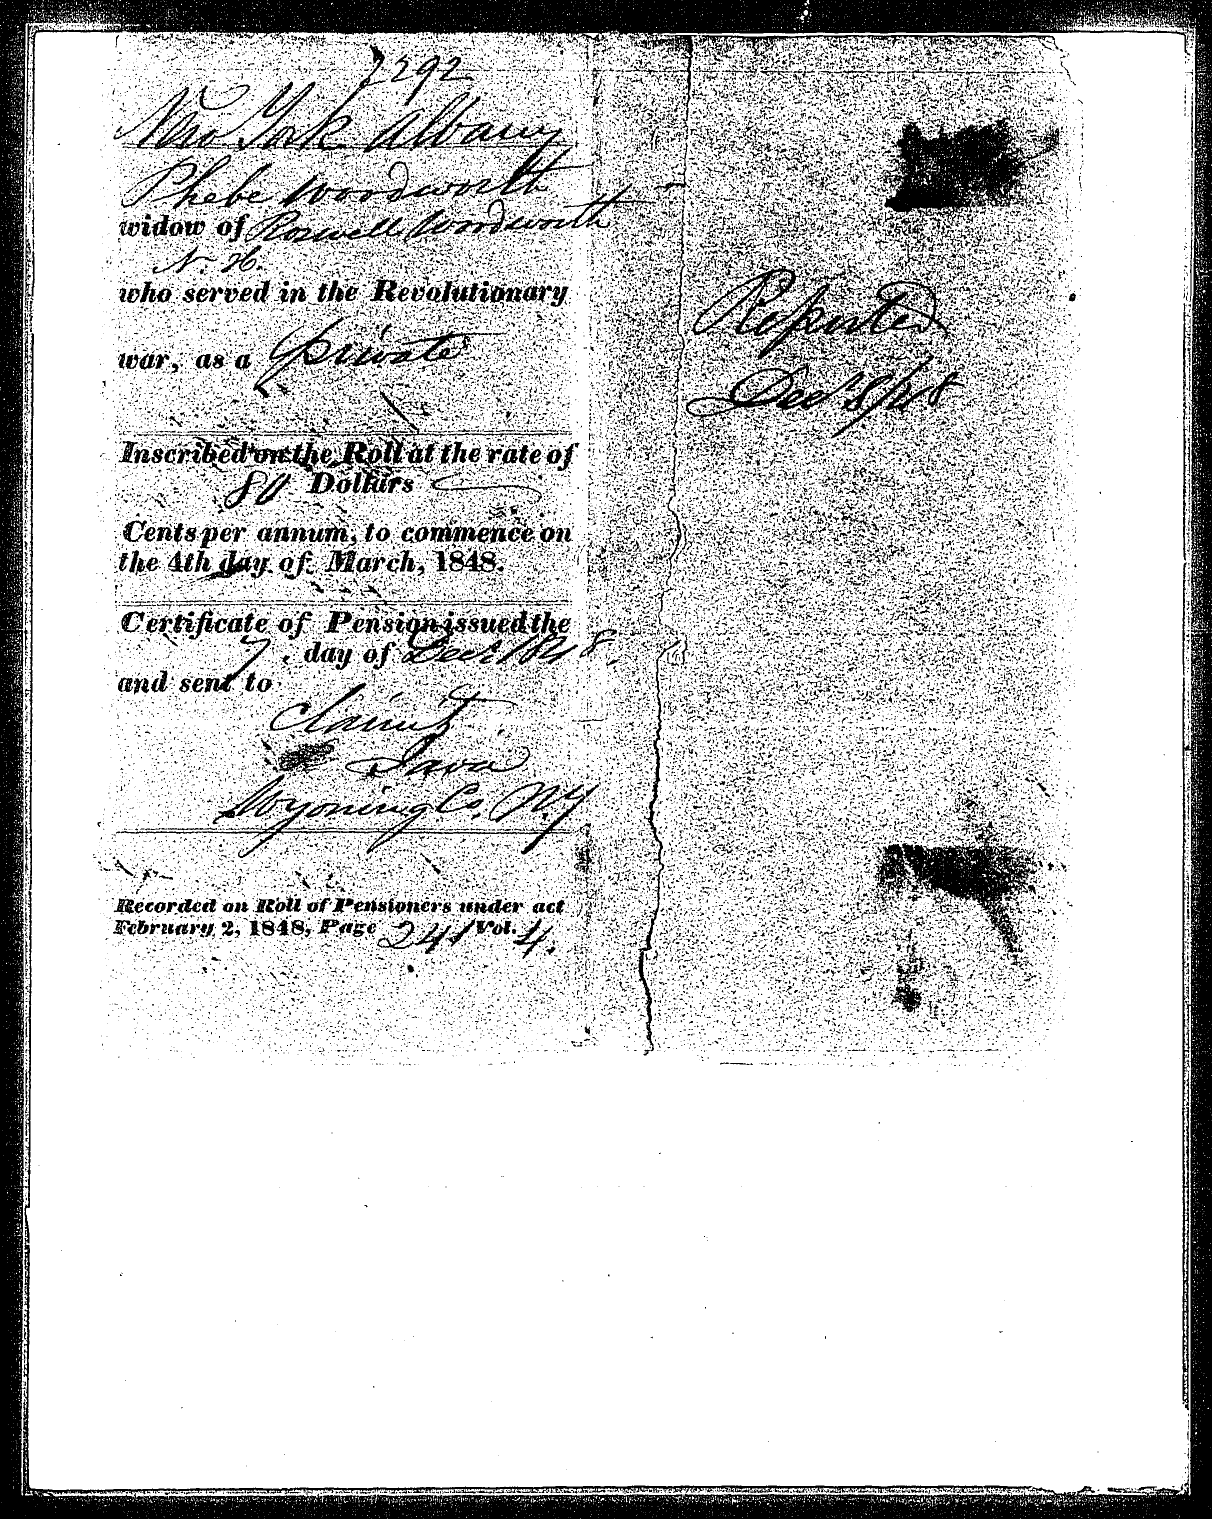 7292
New York Albany
Phebe Woodworth
widow of Roswell Woodworth
N. H.
who served in the Revolutionary
war, as a private
Inscribed on the Roll at the rate of
80 Dollars
Cents per annum, to commence on
the 4th day of March, 1848.
Certificate of Pension issued the
7. day of Decr 1848.
and sent to
Claimt
Java
Wyoming Co. N.Y
Recorded on Roll of Pensioners under act
February 2, 1848, Page 241 Vol. 4.
Reported
Decr 8/48